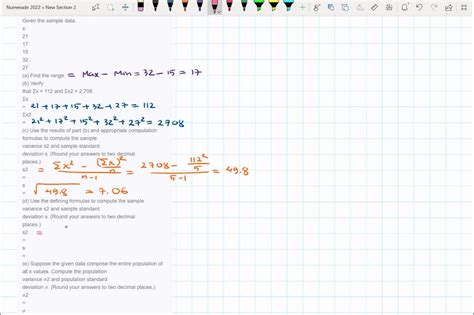 Numerade 2022 » New Section 2
Given the sample data.
x
21
17
15
32
27
(a) Find the range = Max - Min = 32 - 15 = 17
(b) Verify
that Σx = 112 and Σx2 = 2,708.
Σx
= 21 + 17 + 15 + 32 + 27 = 112
Σx2
= 21² + 17² + 15² + 32² + 27² = 2708
(c) Use the results of part (b) and appropriate computation
formulas to compute the sample
variance s2 and sample standard
deviation s. (Round your answers to two decimal
places.)
s2 = Σx² - (Σx)²/n / n-1 = 2708 - 112²/5 / 5-1 = 49.8
=
s √49.8 = 7.06
=
(d) Use the defining formulas to compute the sample
variance s2 and sample standard
deviation s. (Round your answers to two decimal
places.)
s2 =
=
s
=
(e) Suppose the given data comprise the entire population of
all x values. Compute the population
variance σ2 and population standard
deviation σ. (Round your answers to two decimal places.)
σ2
=
σ